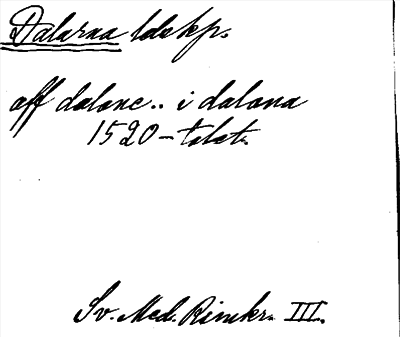 Dalarna ldskp.
aff dalone .. i dalana
1520-talet.
Sv. Med. Rimkr. III.